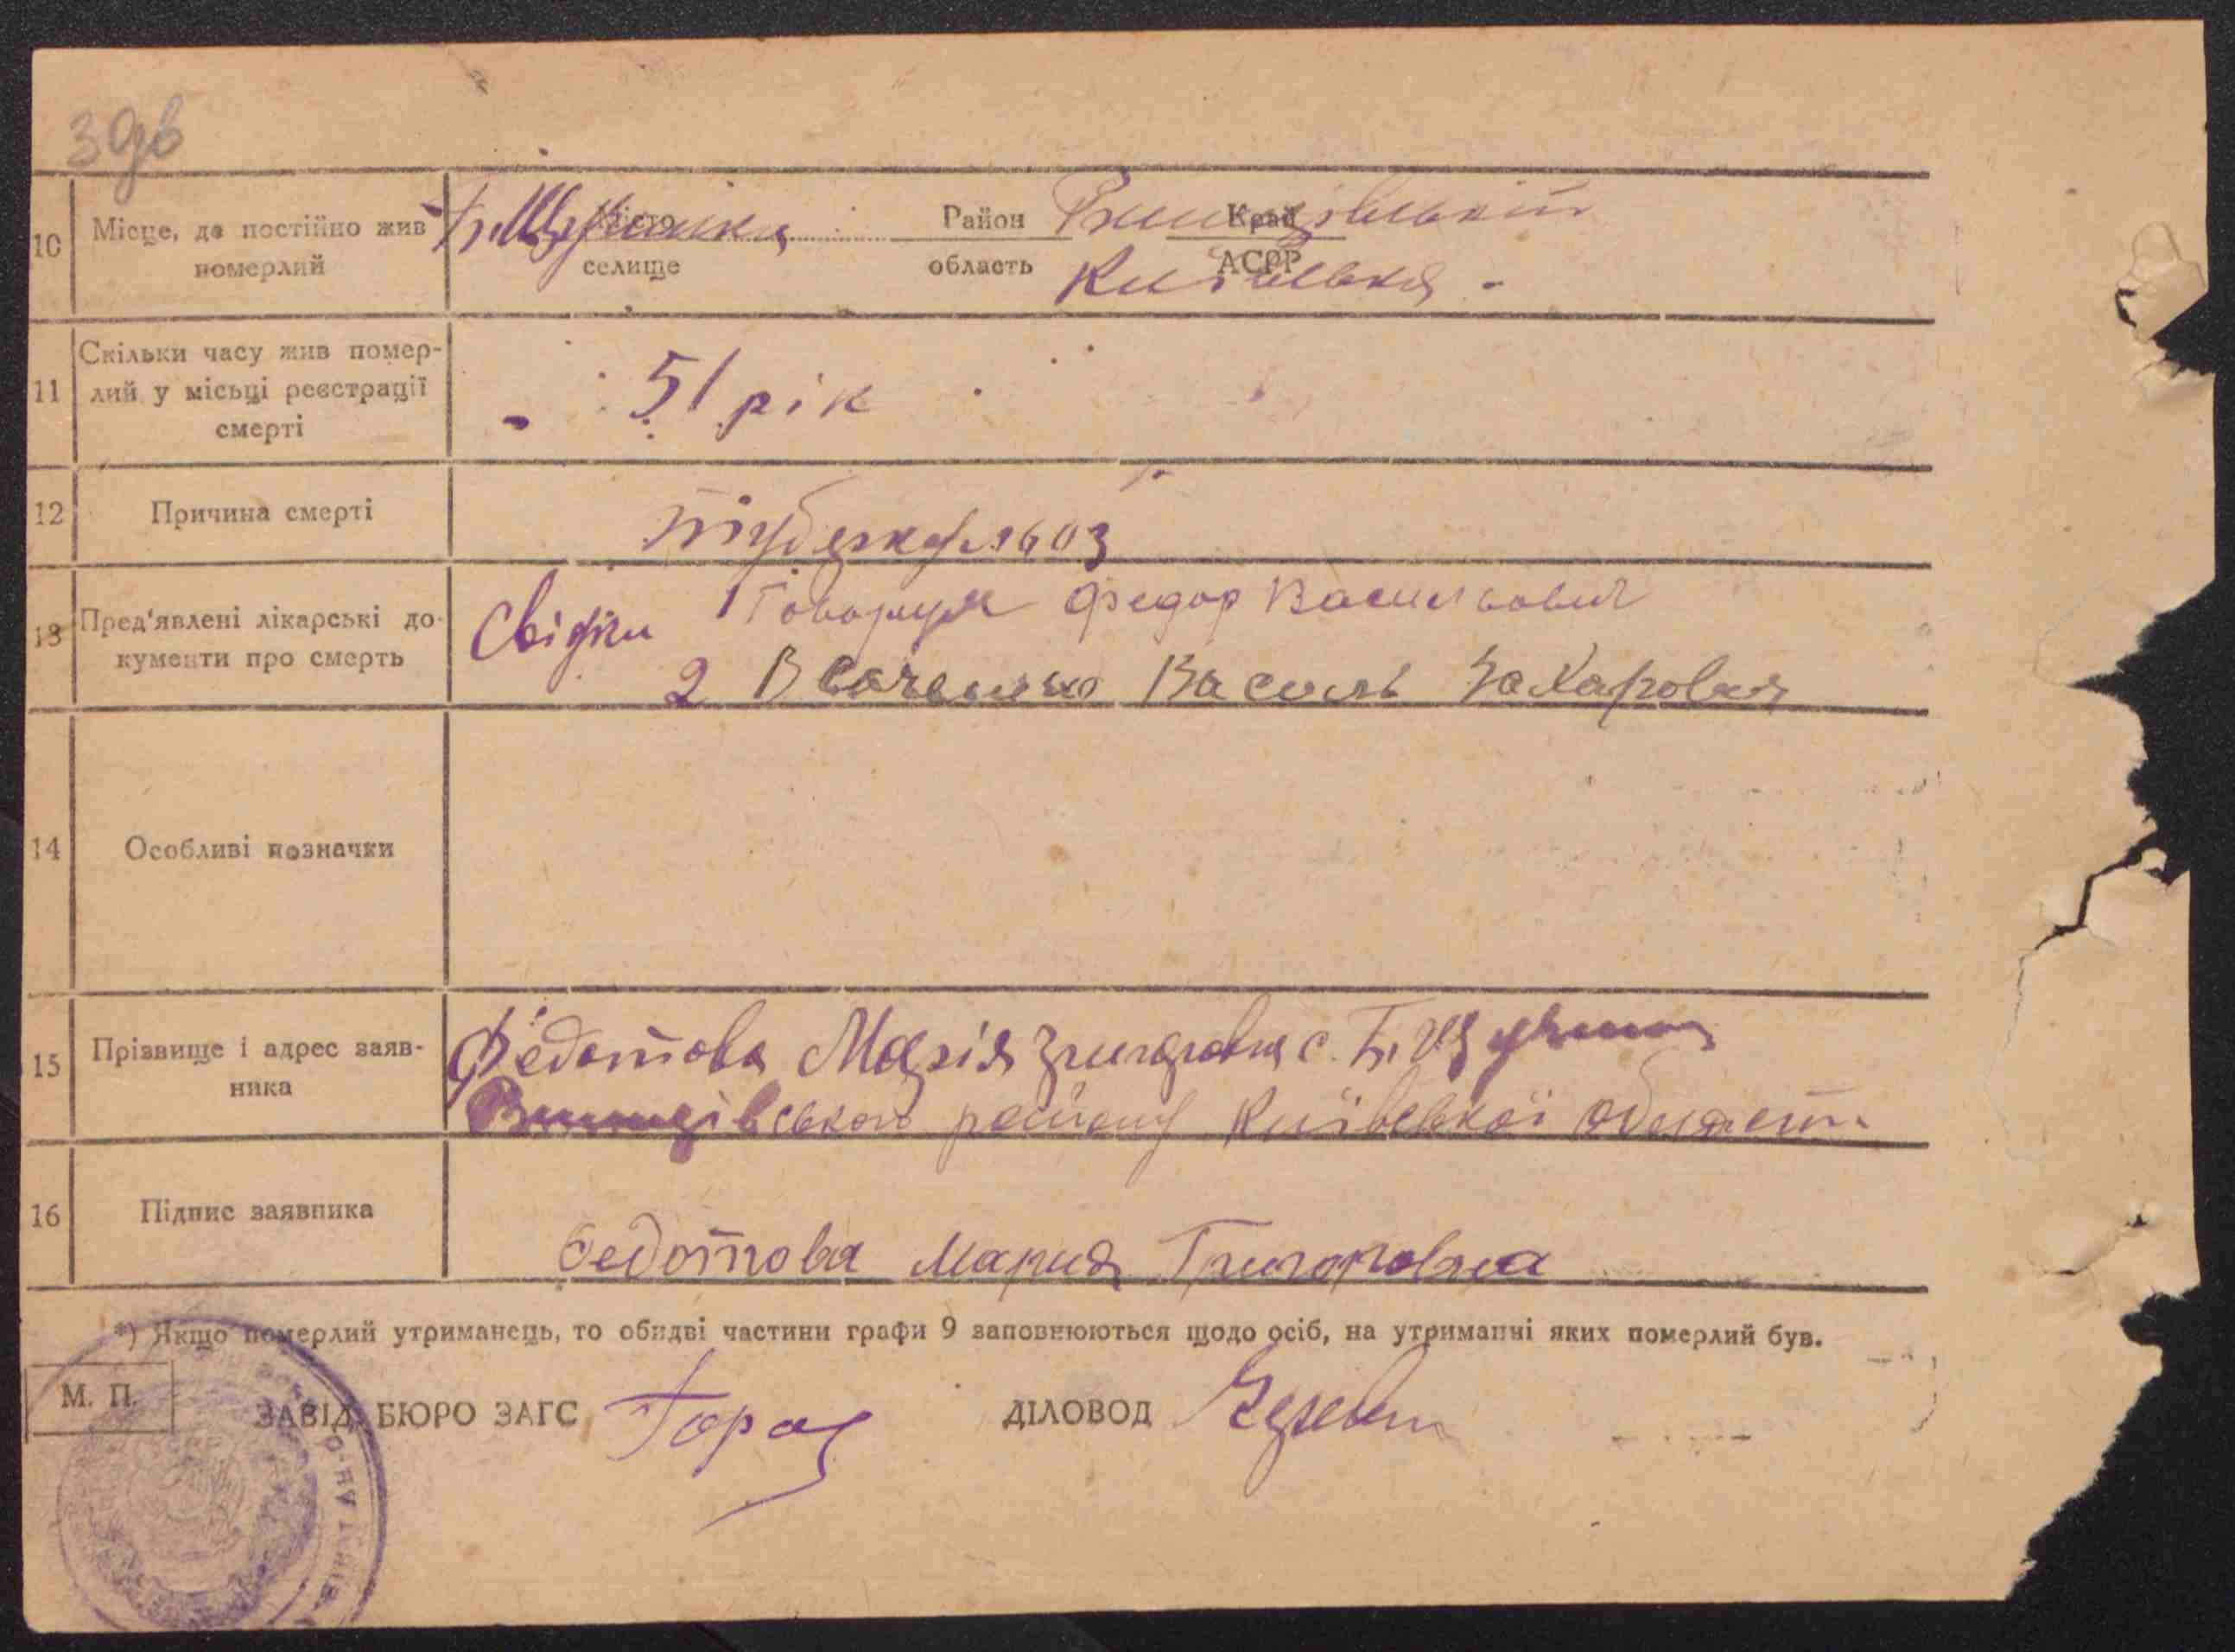 39б
10 Місце, де постійно жив померлий
Б. Щучинка місто селище
Район область Ржищівський Край АСРР
Київська
11 Скільки часу жив помер-
лий у місьці реєстрації
смерті
51 рік
12 Причина смерті
туберкульоз
13 Пред'явлені лікарські до-
кументи про смерть
Свідки 1 Федор Васильович
2 Василь Захарович
14 Особливі позначки
15 Прізвище і адрес заяв-
ника
Федотова Марія Григоровна с. Б. Щучинка
Ржищівського району Київської области
16 Підпис заявника
Федотова Мария Григоровна
*) Якщо померлий утриманець, то обидві частини графи 9 заповнюються щодо осіб, на утриманні яких померлий був.
М. П.
ЗАВІД. БЮРО ЗАГС
ДІЛОВОД